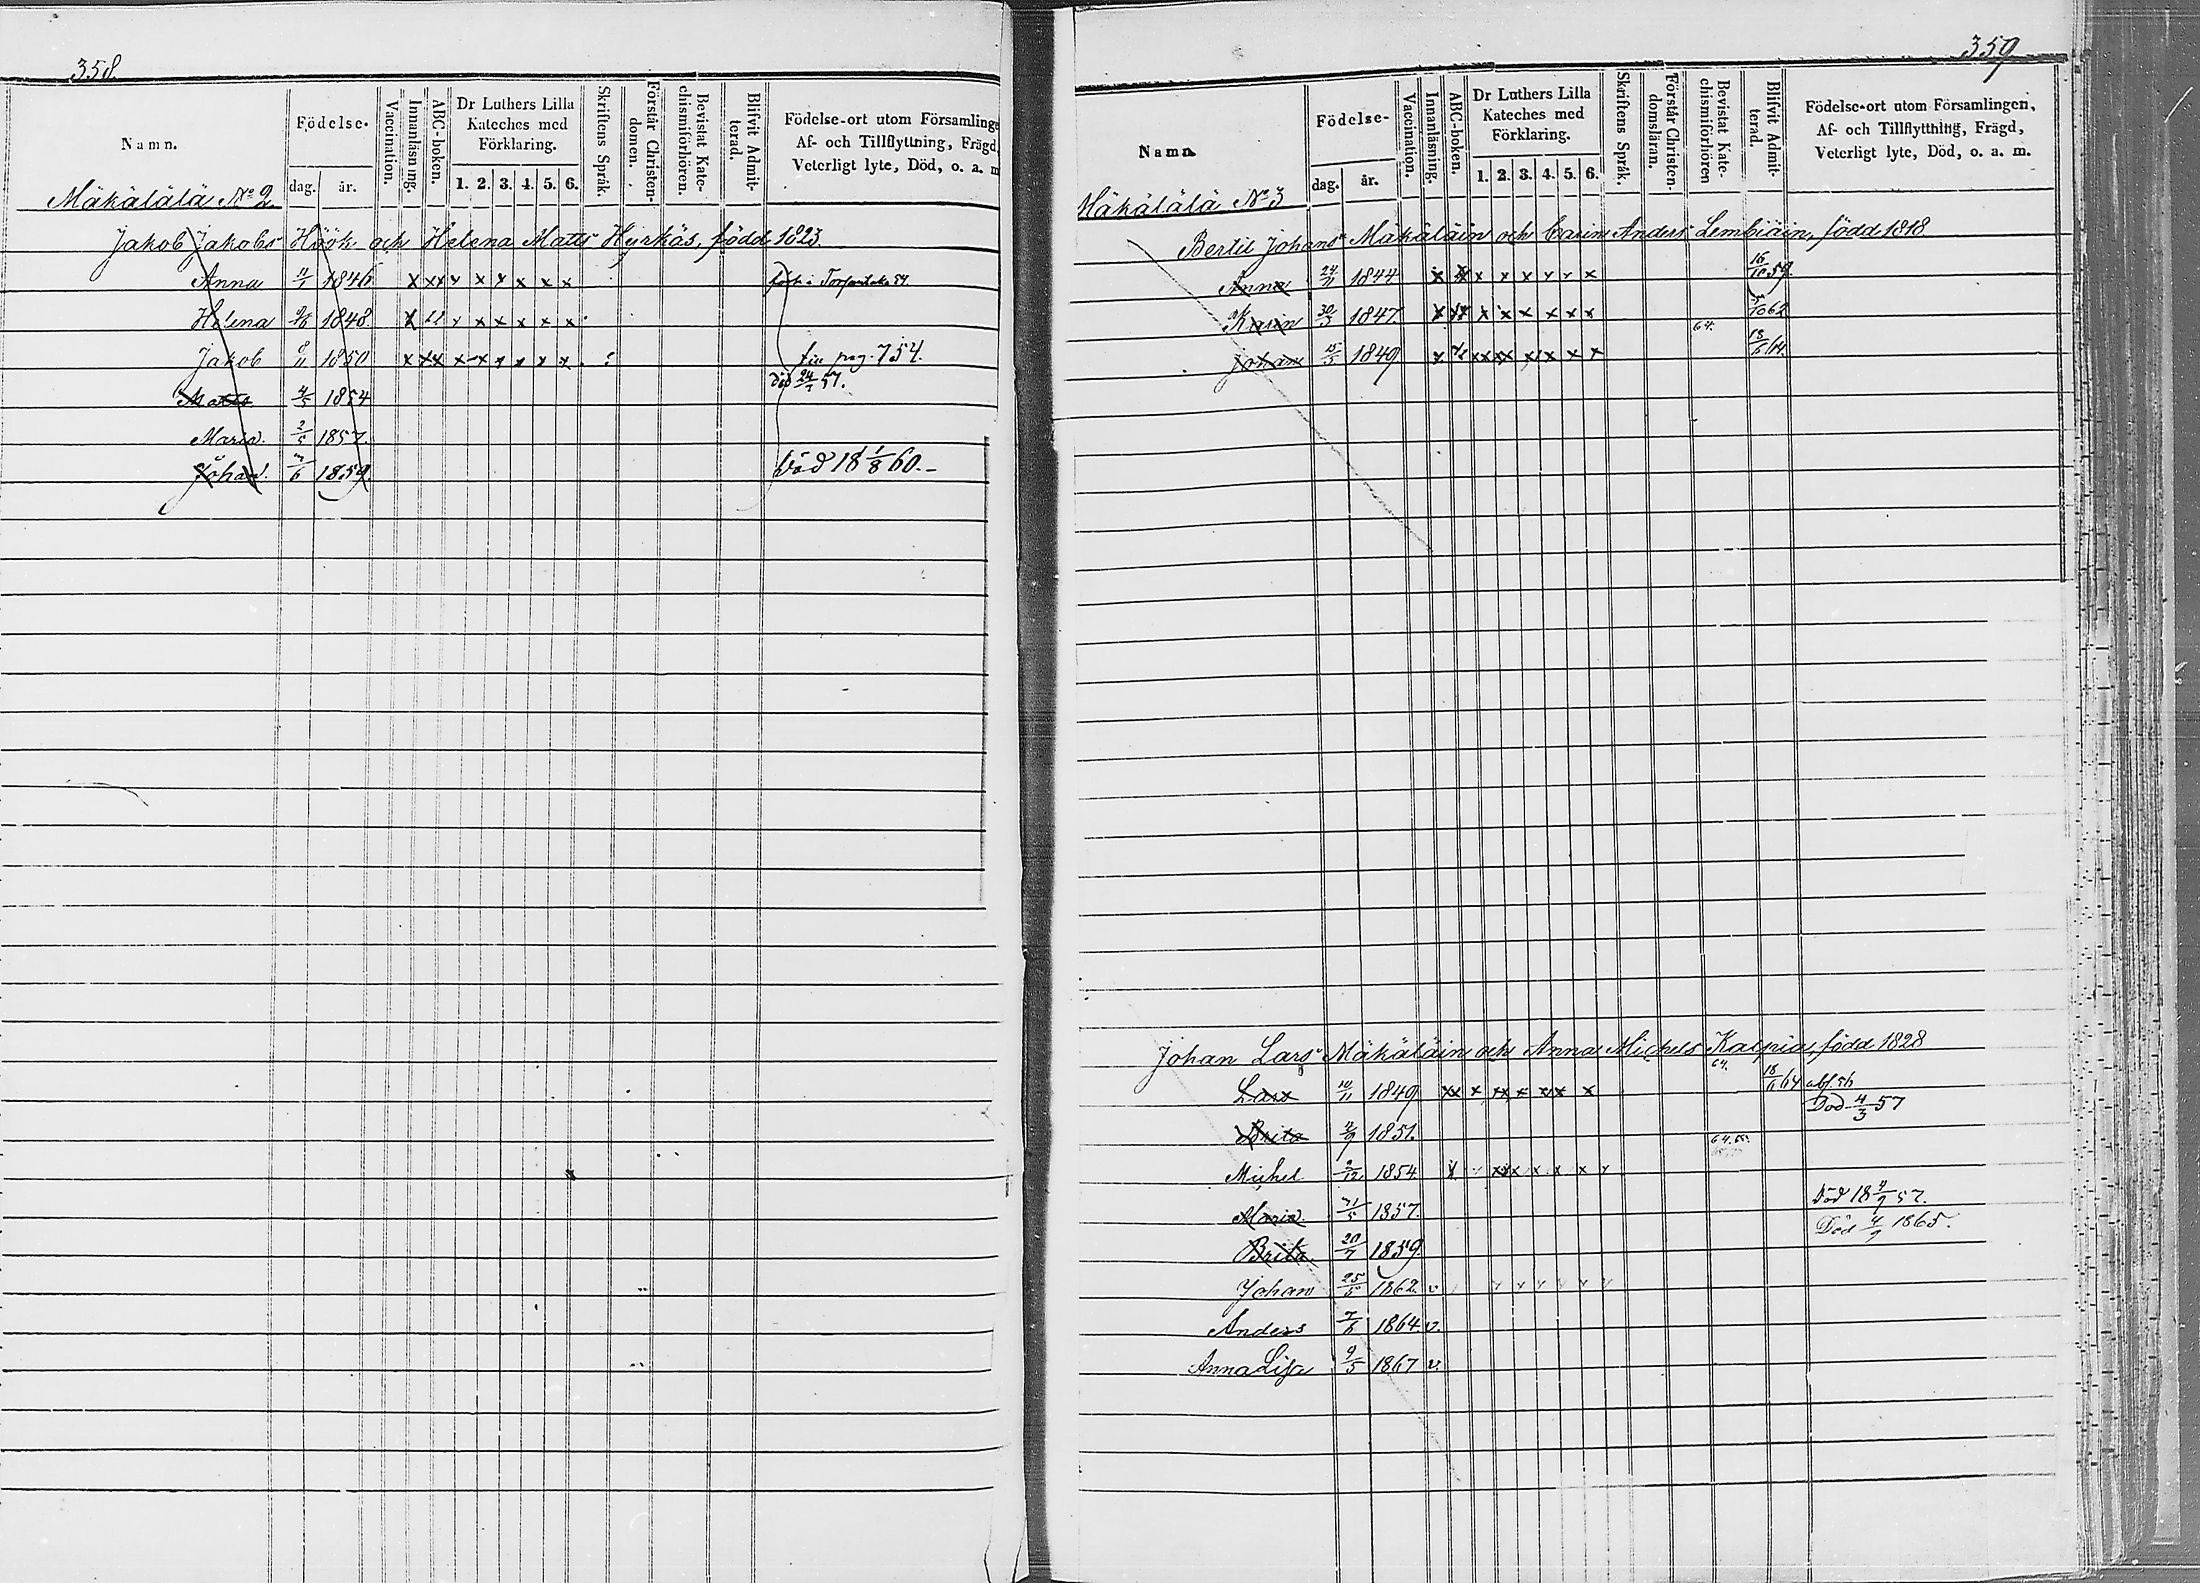 358.
Namn. Födelse- dag. år. Vaccination. Innanläsning. ABC-boken. Dr Luthers Lilla Kateches med Förklaring. 1. 2. 3. 4. 5. 6. Skriftens Språk. Förstår Christendomen. Bevistat Katechismiförhören. Blifvit Admitterad. Födelse-ort utom Församlinge Af- och Tillflyttning, Frägd, Veterligt lyte, Död, o. a. m
Mäkälälä No 2.
Jakob Jakobs Höök och Helena Matts Hyrkäs, född 1823.
Anna 4/1 1846 x xx x x x x x x
Helena 1848.
Jakob 8/11 1850 x xx x x x x x x fin pag. 754.
död 24/7 57.
Matts 4/5 1854
Maria. 2/5 1857.
Johan. 7/6 1859. Död 18 1/8 60.
359
Namn. Födelse- dag. år. Vaccination. Innanläsning. ABC-boken. Dr Luthers Lilla Kateches med Förklaring. 1. 2. 3. 4. 5. 6. Skriftens Språk. Förstår Christendomsläran. Bevistat Katechismiförhören Blifvit Admitterad. Födelse-ort utom Församlingen, Af- och Tillflyttning, Frägd, Veterligt lyte, Död, o. a. m.
Mäkälälä No 3
Bertil Johans Mäkäläin och Carin Anders Lembiäin, född 1818
Anna 24/11 1844 x x x x x x x x 16/10 59.
Karin 30/3 1847 x x x x x x x x 5/10 62
Johan 15/5 1849 x x x x x x x 64. 18/6 64.
Johan Lars Mäkäläin och Anna Michels Karpia, född 1828
Lars 10/11 1849 xx x xx x xx x 64. 18/6 64
Död 4/3 57
Brita 2/9 1851.
Michel 9/12 1854. 64. 65.
Maria. 31/5 1857. Död 18 4/9 57.
Död 4/9 1865.
Brita 20/7 1859.
Johan 25/5 1862. v
Anders 7/6 1864. v.
Anna Lisa 9/5 1867 v.